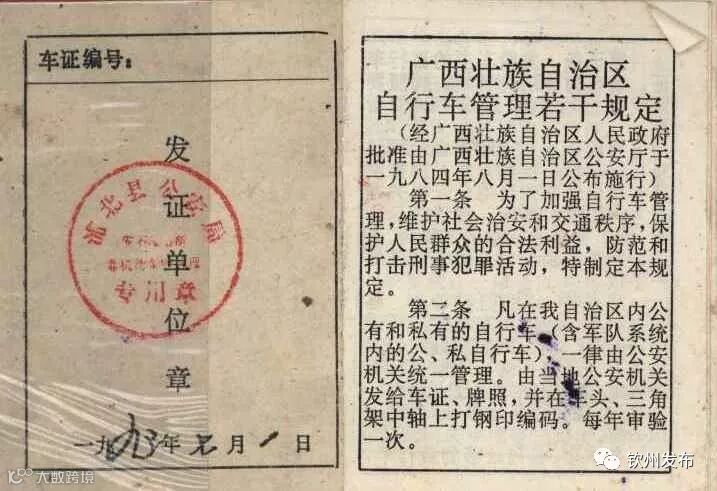 车证编号：
发证单位章
浦北县公安局
专用章
一九九三年元月1日
广西壮族自治区
自行车管理若干规定
（经广西壮族自治区人民政府
批准由广西壮族自治区公安厅于
一九八四年八月一日公布施行）
第一条　为了加强自行车管
理，维护社会治安和交通秩序，保
护人民群众的合法利益，防范和
打击刑事犯罪活动，特制定本规
定。
第二条　凡在我自治区内公
有和私有的自行车（含军队系统
内的公、私自行车），一律由公安
机关统一管理。由当地公安机关
发给车证、牌照，并在车头、三角
架中轴上打钢印编码。每年审验
一次。
钦州发布
大数跨境